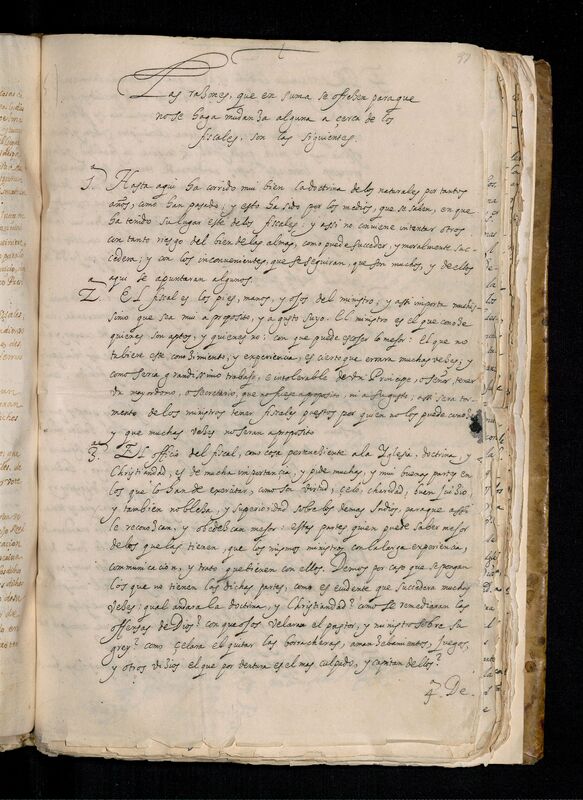 97
Las razones, que en suma se offrezen para que
no se haga mudanza alguna a çerca de los
fiscales, son las siguientes.
1.ª Hasta aqui ha corrido mui bien la doctrina de los naturales por tantos
años, como han pasado, y esto ha sido por los medios, que se saben, en que
ha tenido su lugar este de los fiscales: y assi no conviene intentar otros
con tanto riesgo del bien de las almas, como puede suceder, y moralmente suc-
cedera; y con los inconvenientes, que se seguiran, que son muchos, y de ellos
aqui se apuntaran algunos.
2.ª El fiscal es los pies, manos, y ojos del ministro; y assi importa muchis-
simo que sea mui a proposito, y a gusto suyo. El ministro es el que conoce
quienes son aptos, y quienes no: con que puede escojer lo mejor: El que no
tubiere este conozimiento, y experiencia, es cierto que errara muchas vezes, y
como seria grandissimo trabajo, e intolerable de un Principe, o señor, tener
un mayordomo, o secretario, que no fuese a proposito, ni a su gusto; assi sera tor-
mento de los ministros tener fiscales puestos por quien no los puede conoçer
y que muchas vezes no seran a proposito
3.ª El officio del fiscal, como cosa perteneciente a la Yglesia, doctrina, y
Christiandad, es de mucha importancia, y pide muchas, y mui buenas partes en
los que lo han de exercitar, como son virtud, çelo, charidad, buen juizio
y tambien nobleza, y superioridad sobre los demas Indios, para que assi
le reconozcan, y obedezcan mejor: estas partes quien puede saber mejor
de los que las tienen, que los mismos ministros con la larga experiencia,
communicacion, y trato que tienen con ellos. Demos por caso que se pongan
los que no tienen las dichas partes, como es evidente que succedera muchas
vezes: qual andara la doctrina, y Christiandad? como se remediaran las
offensas de Dios? con que ojos velaran el pastor, y ministro sobre su
grey? como çelara el quitar las borracheras, amanzebamientos, juegos,
y otros vizios el que por ventura es el mas culpado, y capitan dellos?
4.ª De